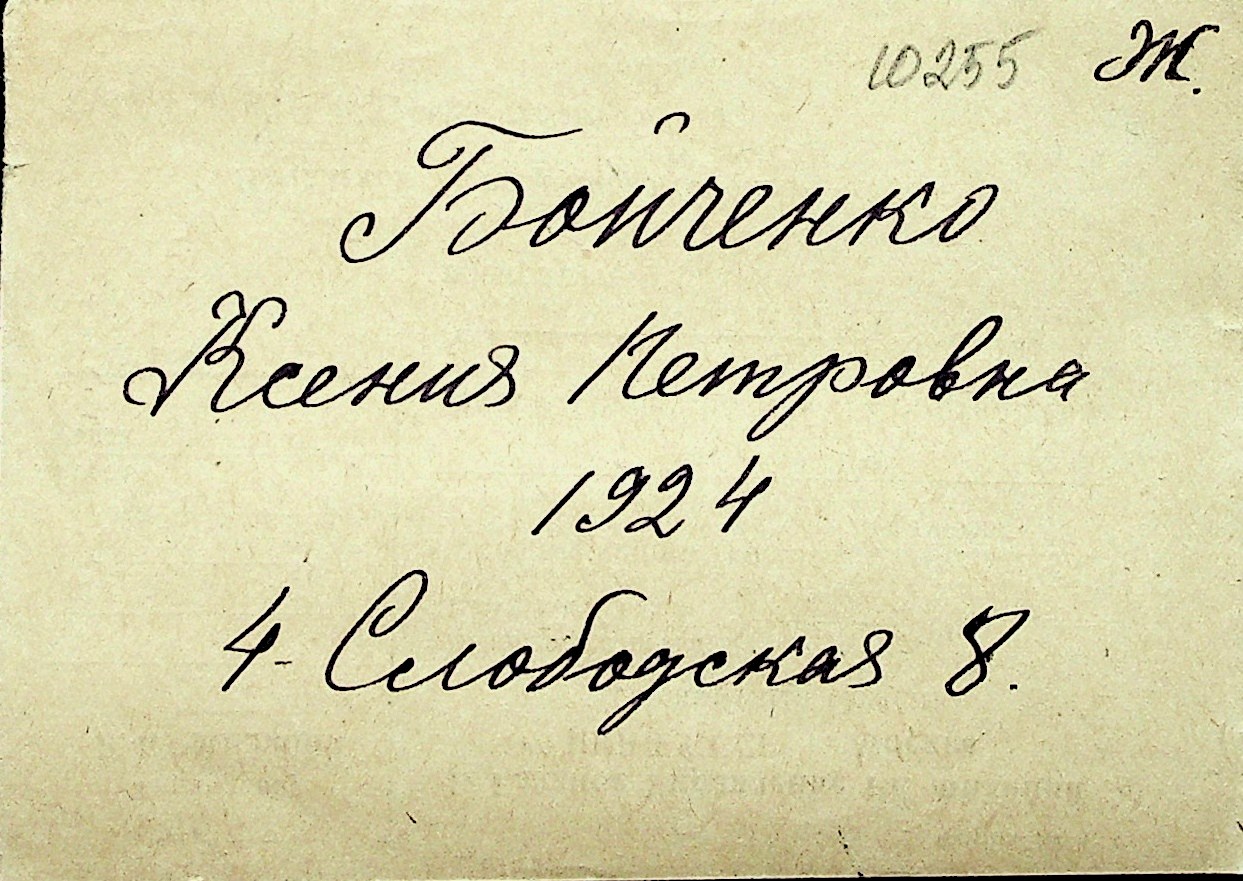 10255 Ж.
Бойченко
Ксения Петровна
1924
4- Слободская 8.